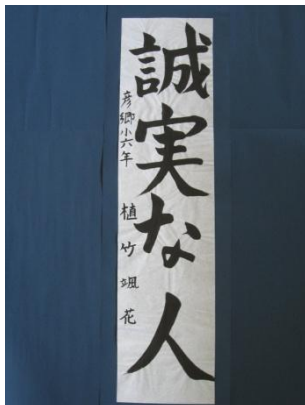 誠実な人
彦郷小六年 植竹颯花